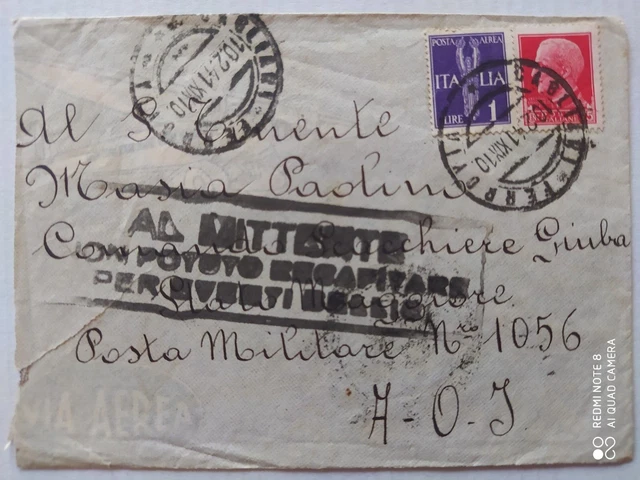 POSTA AEREA
ITALIA
LIRE 1
ITALIANE
CAGLIARI
FERROVIA
10.2.41 XIX 10
Al S. Tenente
Masia Paolino
Comando Scacchiere Giuba
Stato Maggiore
Posta Militare Nro 1056
A-O-I
AL MITTENTE
NON POTUTO RECAPITARE
PER EVENTI BELLICI
VIA AEREA
REDMI NOTE 8
AI QUAD CAMERA